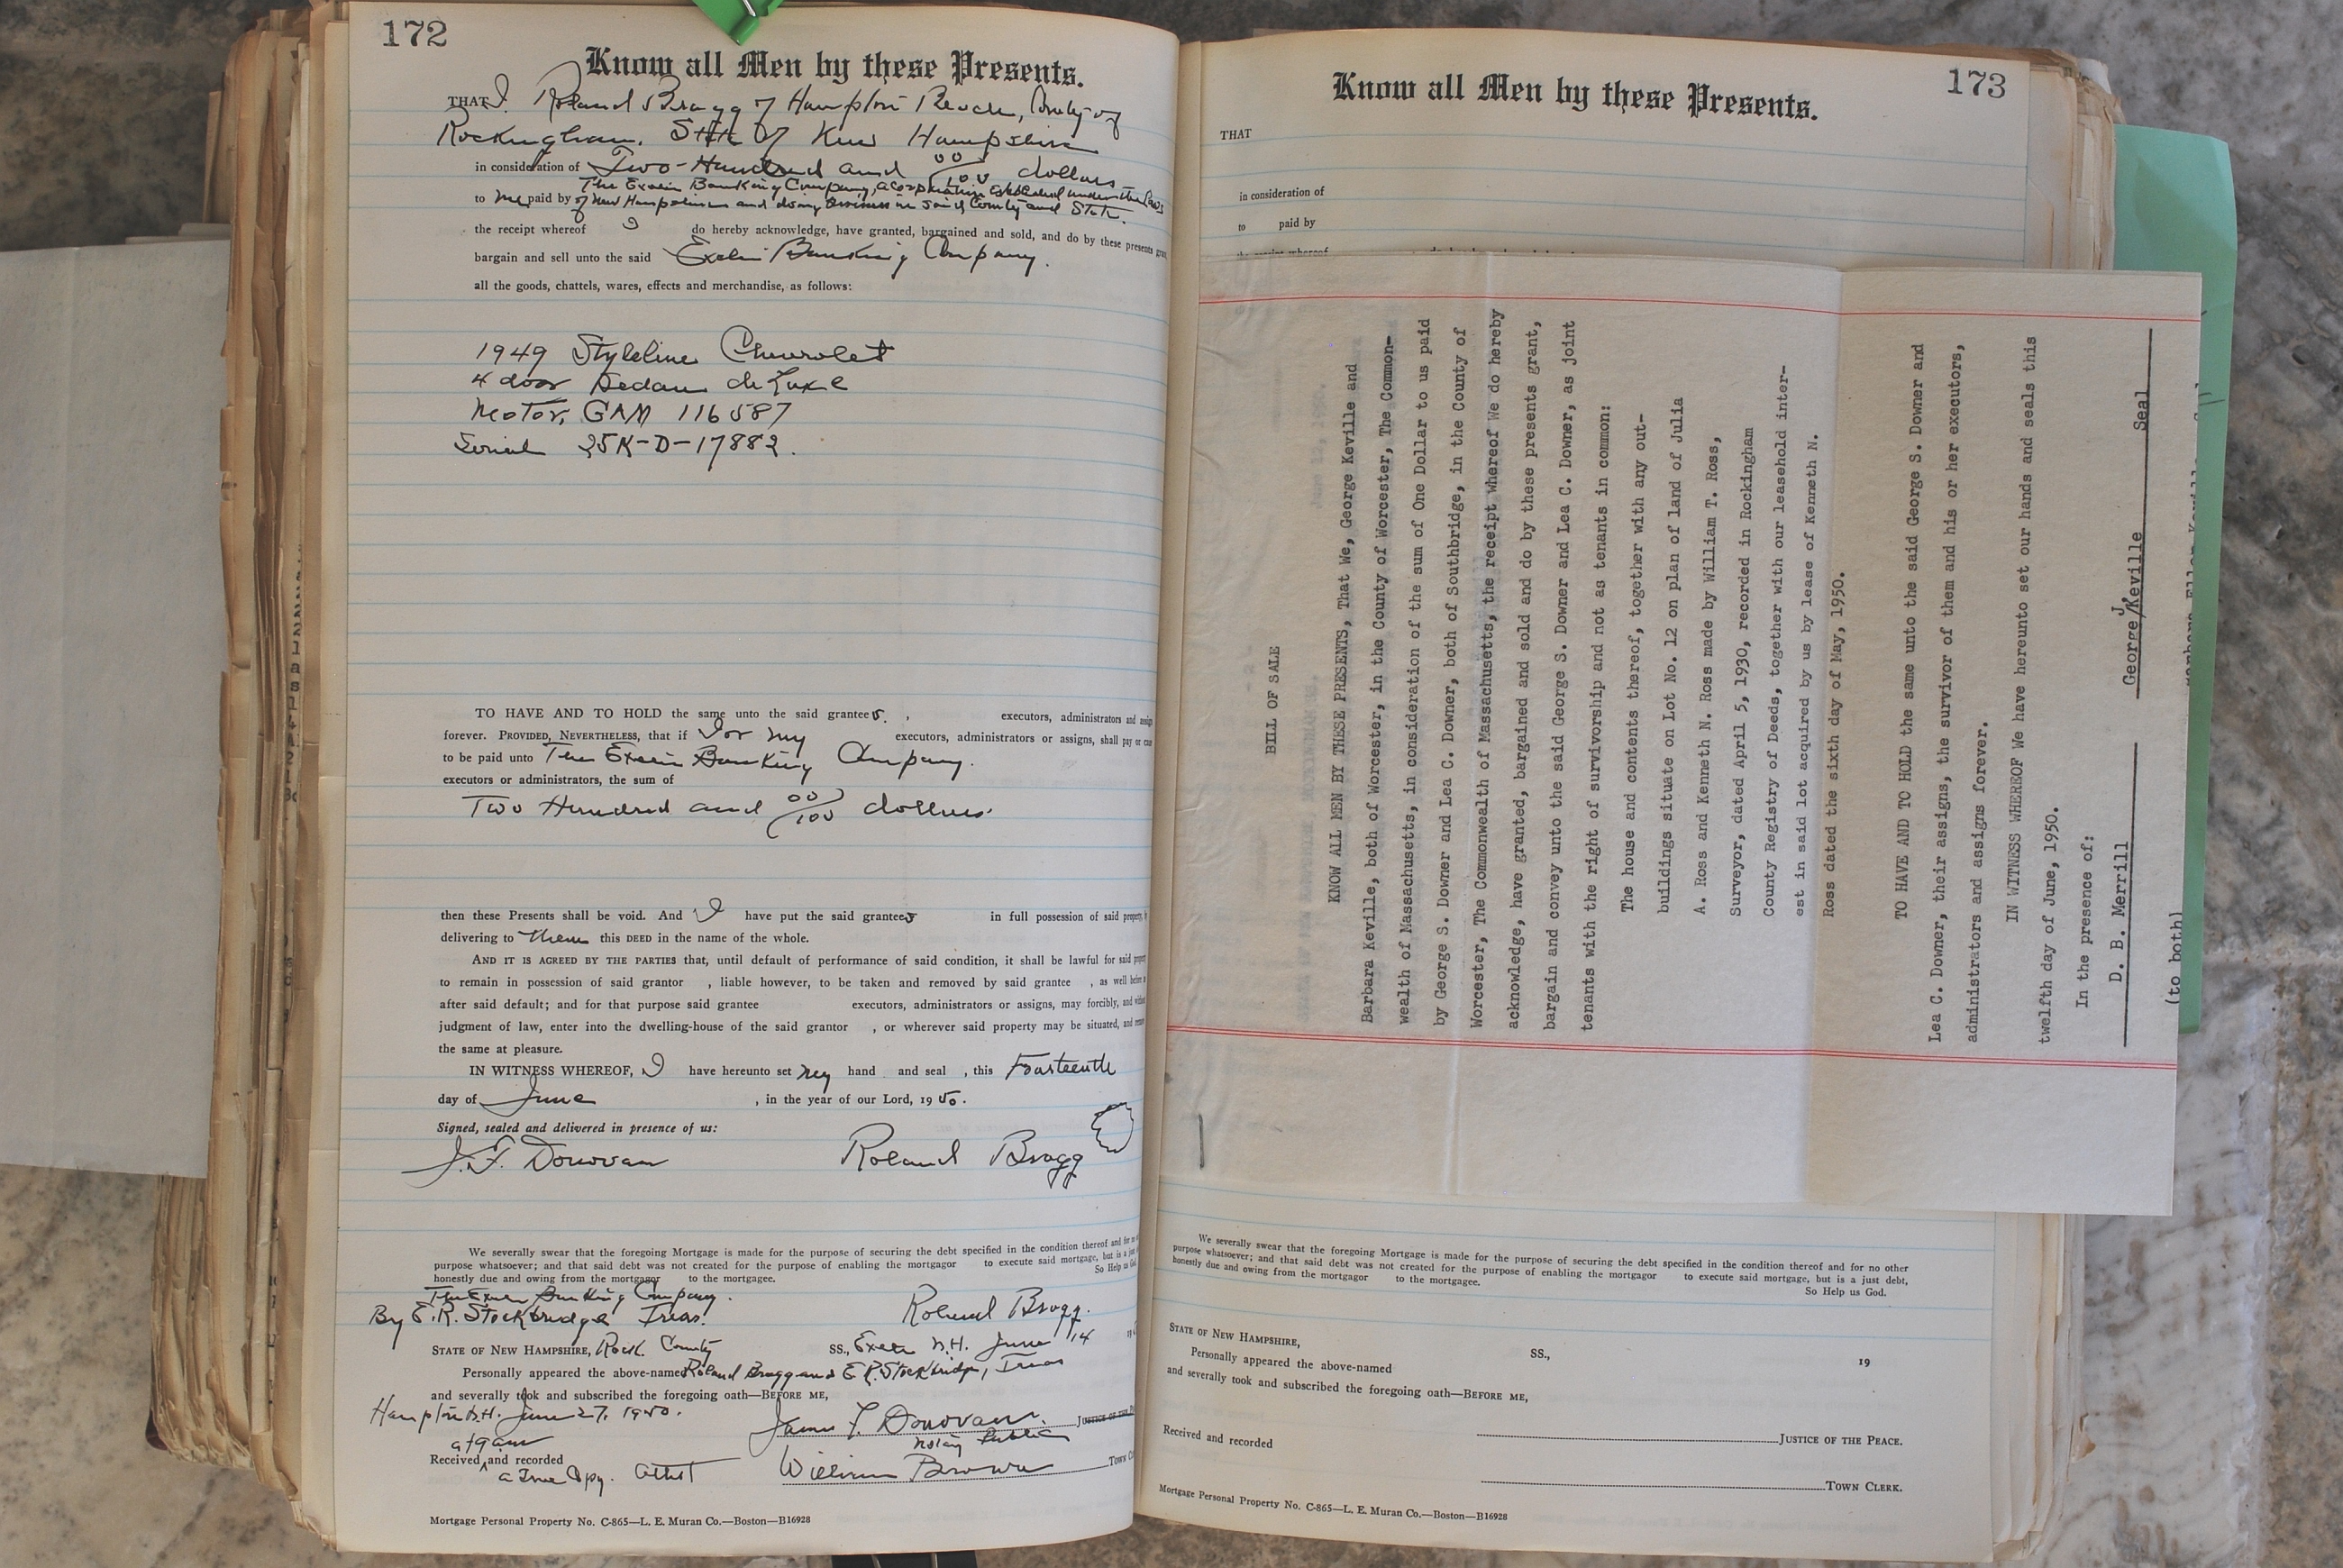 172
Know all Men by these Presents.
THAT I. Roland Bragg of Hampton Beach, County of
Rockingham. State of New Hampshire
in consideration of Two-Hundred and 00/100 dollars
The Exeter Banking Company, a corporation established under the laws
to me paid by of New Hampshire and doing business in said County and State.
the receipt whereof I do hereby acknowledge, have granted, bargained and sold, and do by these presents grant,
bargain and sell unto the said Exeter Banking Company.
all the goods, chattels, wares, effects and merchandise, as follows:
1949 Styleline Chevrolet
4 door Sedan de Luxe
Motor, GAM 116587
Serial 25K-D-17882.
TO HAVE AND TO HOLD the same unto the said grantees. , executors, administrators and assigns
forever. PROVIDED, NEVERTHELESS, that if I or my executors, administrators or assigns, shall pay or cause
to be paid unto The Exeter Banking Company.
executors or administrators, the sum of
Two Hundred and 00/100 dollars.
then these Presents shall be void. And I have put the said grantees in full possession of said property, by
delivering to them this DEED in the name of the whole.
AND IT IS AGREED BY THE PARTIES that, until default of performance of said condition, it shall be lawful for said
to remain in possession of said grantor , liable however, to be taken and removed by said grantee , as well before as
after said default; and for that purpose said grantee executors, administrators or assigns, may forcibly, and without
judgment of law, enter into the dwelling-house of the said grantor , or wherever said property may be situated, and remove
the same at pleasure.
IN WITNESS WHEREOF, I have hereunto set my hand and seal , this Fourteenth
day of June , in the year of our Lord, 1950.
Signed, sealed and delivered in presence of us:
J. F. Donovan Roland Bragg
We severally swear that the foregoing Mortgage is made for the purpose of securing the debt specified in the condition thereof and for no
purpose whatsoever; and that said debt was not created for the purpose of enabling the mortgagor to execute said mortgage, but is a just
honestly due and owing from the mortgagor to the mortgagee. So Help us God.
The Exeter Banking Company.
By E. R. Stockbridge Treas. Roland Bragg.
STATE OF NEW HAMPSHIRE, Rock. County SS., Exeter N.H. June 14
Personally appeared the above-named Roland Bragg and E. R. Stockbridge, Treas
and severally took and subscribed the foregoing oath—BEFORE ME,
Hampton N.H. June 27, 1950. James F. Donovan. JUSTICE OF THE
at 9 am Notary Public
Received and recorded
a True Copy. Attest William Brown TOWN
Mortgage Personal Property No. C-865—L. E. Muran Co.—Boston—B16928
173
Know all Men by these Presents.
THAT
in consideration of
to paid by
BILL OF SALE
KNOW ALL MEN BY THESE PRESENTS, That We, George Keville and
Barbara Keville, both of Worcester, in the County of Worcester, The Common-
wealth of Massachusetts, in consideration of the sum of One Dollar to us paid
by George S. Downer and Lea C. Downer, both of Southbridge, in the County of
Worcester, The Commonwealth of Massachusetts, the receipt whereof We do hereby
acknowledge, have granted, bargained and sold and do by these presents grant,
bargain and convey unto the said George S. Downer and Lea C. Downer, as joint
tenants with the right of survivorship and not as tenants in common:
The house and contents thereof, together with any out-
buildings situate on Lot No. 12 on plan of land of Julia
A. Ross and Kenneth N. Ross made by William T. Ross,
Surveyor, dated April 5, 1930, recorded in Rockingham
County Registry of Deeds, together with our leasehold inter-
est in said lot acquired by us by lease of Kenneth N.
Ross dated the sixth day of May, 1950.
TO HAVE AND TO HOLD the same unto the said George S. Downer and
Lea C. Downer, their assigns, the survivor of them and his or her executors,
administrators and assigns forever.
IN WITNESS WHEREOF We have hereunto set our hands and seals this
twelfth day of June, 1950.
In the presence of:
D. B. Merrill George J. Keville Seal
(to both)
We severally swear that the foregoing Mortgage is made for the purpose of securing the debt specified in the condition thereof and for no other
purpose whatsoever; and that said debt was not created for the purpose of enabling the mortgagor to execute said mortgage, but is a just debt,
honestly due and owing from the mortgagor to the mortgagee. So Help us God.
STATE OF NEW HAMPSHIRE, SS., 19
Personally appeared the above-named
and severally took and subscribed the foregoing oath—BEFORE ME,
JUSTICE OF THE PEACE.
Received and recorded
TOWN CLERK.
Mortgage Personal Property No. C-865—L. E. Muran Co.—Boston—B16928